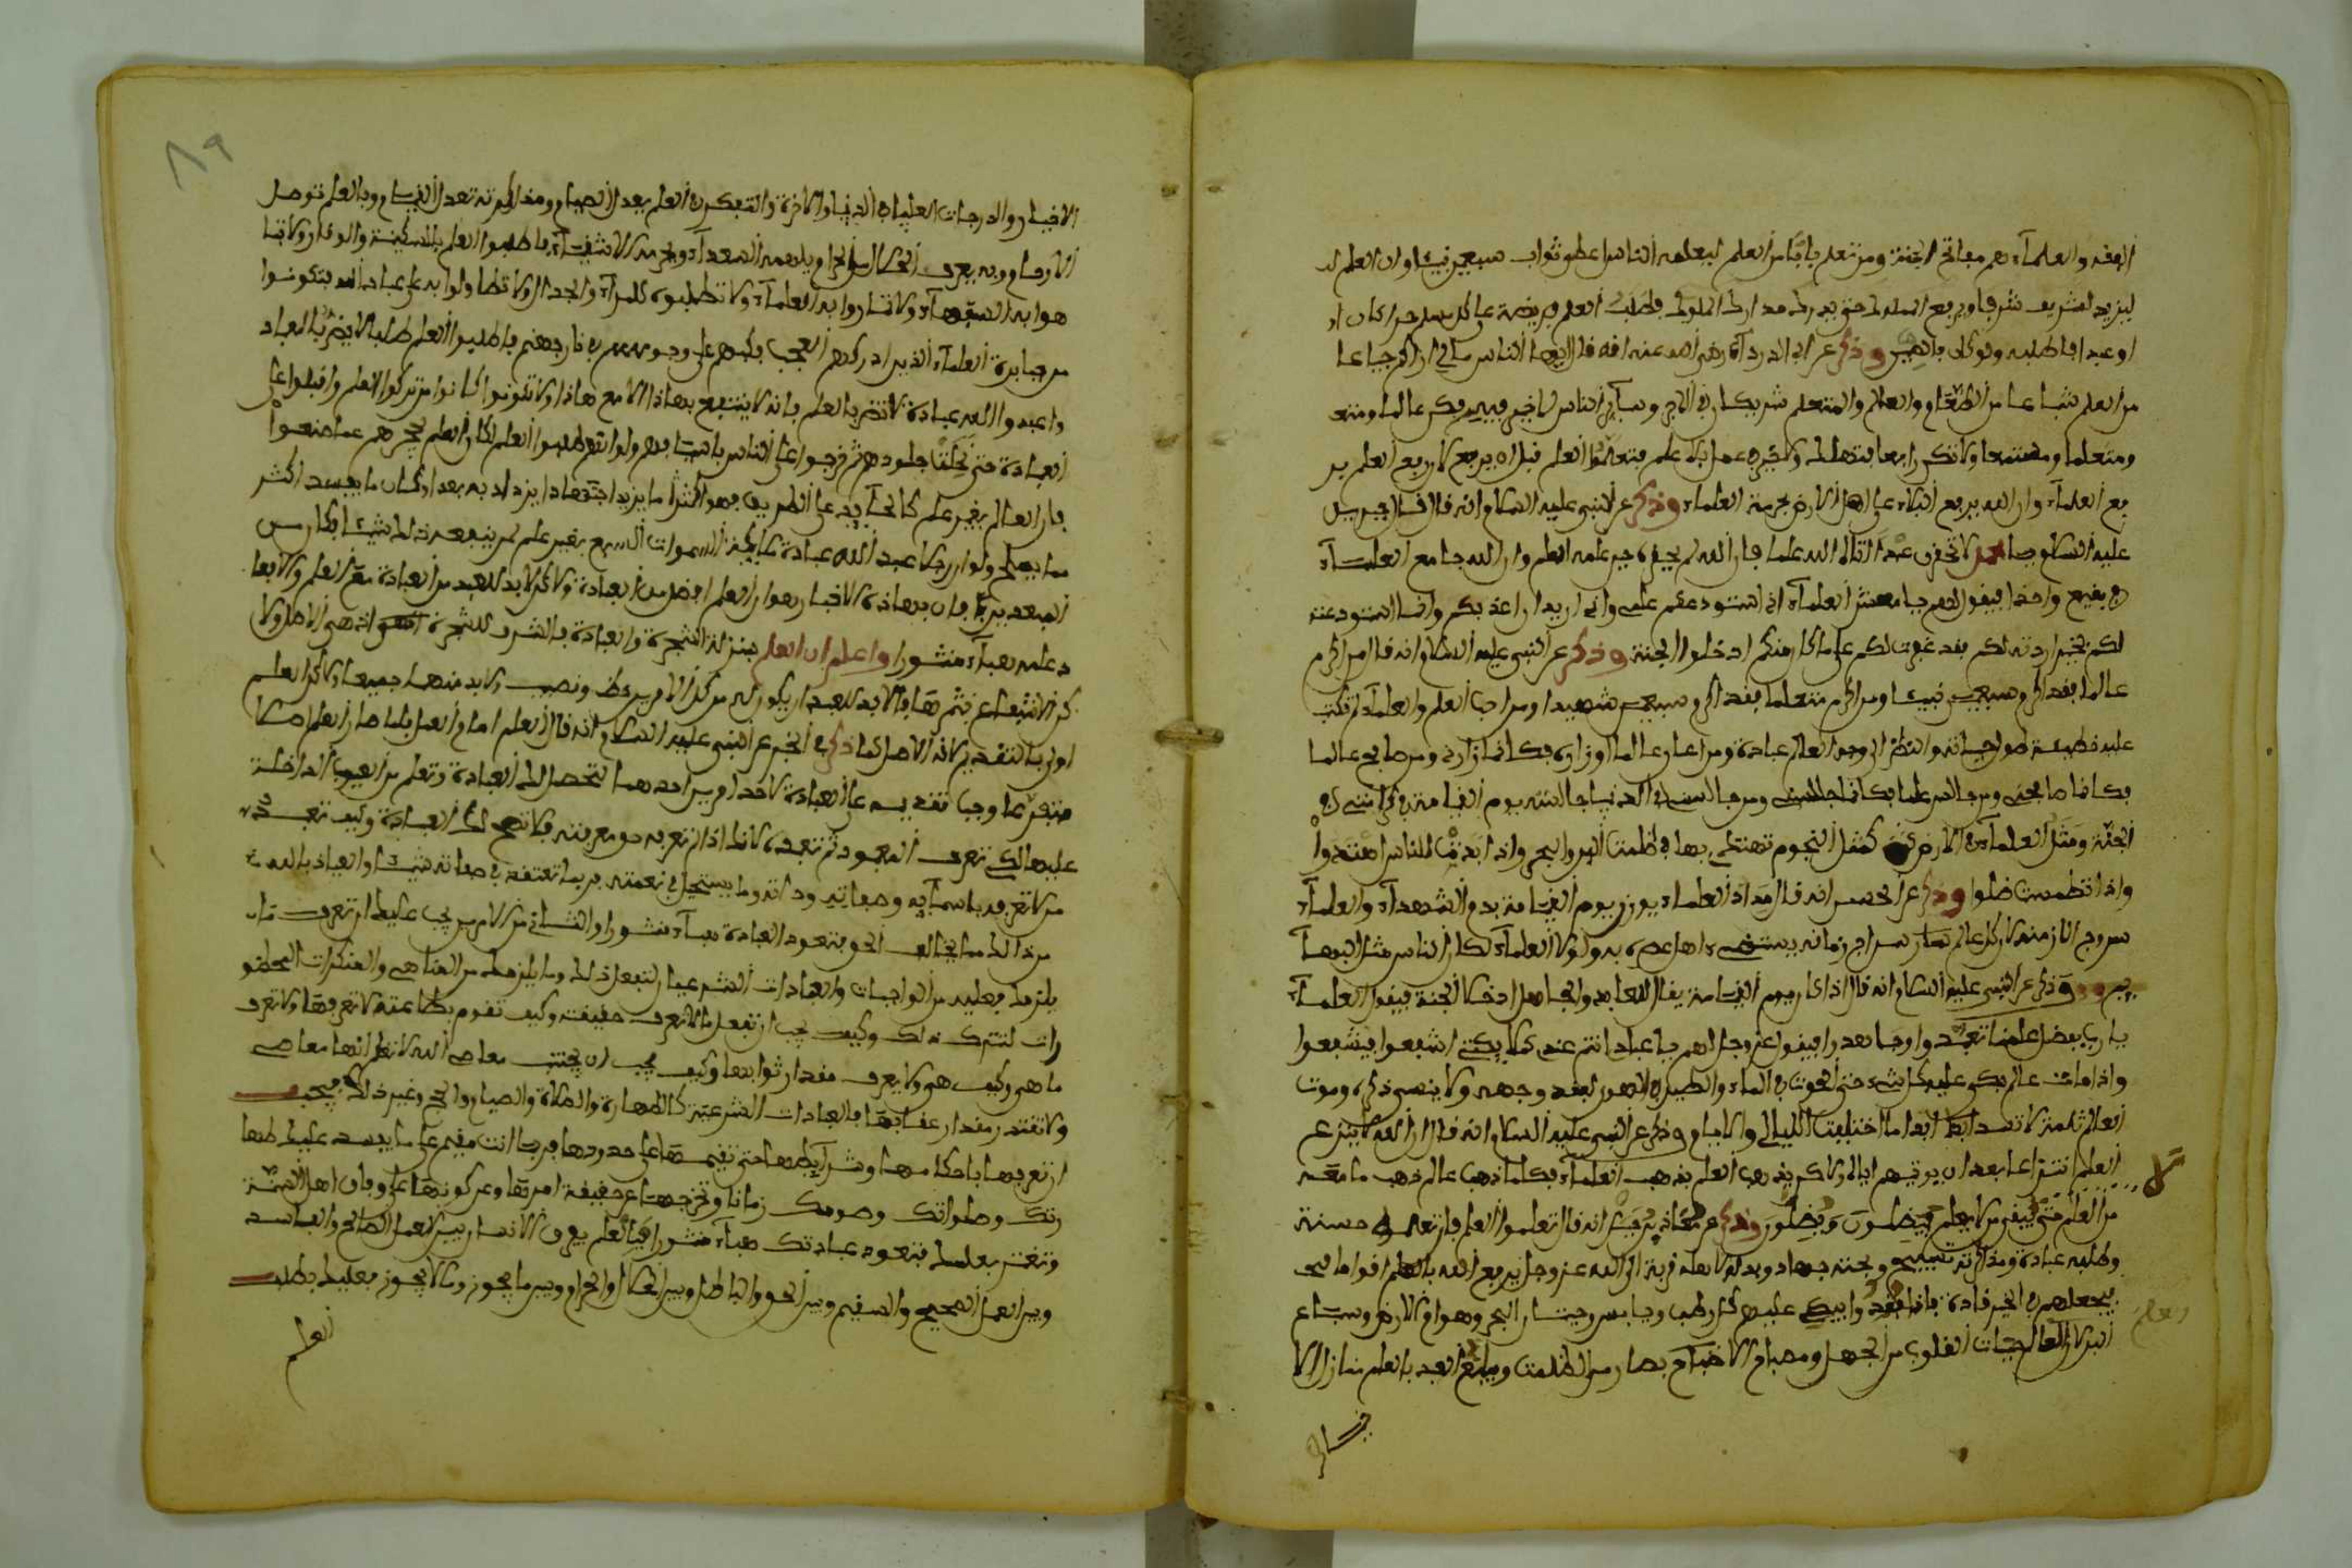 الفقه والعلماء هم مفاتح الجنة ومن تعلم بابا من العلم ليعلمه الناس اعطي ثواب سبعين نبيا وان العلم
ليزيد الشريف شرفا ويرفع المملوك حتى يدرك مدارك الملوك فطلب العلم فريضة على كل مسلم حرا كان او
او عبدا وذكر عن ابي الدرداء رضي الله عنه انه قال ايها الناس مالي اراكم جياعا
من العلم شباعا من الطعام والعالم والمتعلم شريكان في الاجر وسائر الناس لا خير فيهم فكن عالما ومتعـ
ومتعلما ومستمعا ولا تكن رابعا فتهلك ولا خير في عمل بلا علم فتعلموا العلم قبل ان يرفع لان رفع العلم بر
فع العلماء وان الله يرفع البلاء على اهل الارض بحرمة العلماء وذكر عن النبي عليه السلام انه قال قال جبريل
عليه السلام لا تحقرن عبدا اتاه الله علما فان الله لم يحقره حين علمه العلم وان الله جامع العلماء
في بقيع واحد فيقول لهم يا معشر العلماء اني استودعتكم علمي واني اريد ان اعذبكم وانما استودعته
لكم لخير اردته لكم فقد غفرت لكم على ما كان منكم ادخلوا الجنة وذكر عن النبي عليه السلام انه قال من اكرم
عالما فقد اكرم سبعين نبيا ومن اكرم متعلما فقد اكرم سبعين شهيدا ومن احب العلم والعلماء لم تكتب
عليه خطيئة طول حياته والنظر الى وجه العالم عبادة ومن اعان عالما او زاره فكانما زارني ومن صافح عالما
فكانما صافحني ومن جالس عالما فكانما جالسني ومن جالسني في الدنيا جالسته يوم القيامة في
الجنة ومثل العلماء في الارض كمثل النجوم تهتدي بها في ظلمت البر والبحر واذا بدت للناس اهتدوا
واذا تطمست ضلوا وذكر عن الحسن انه قال مداد العلماء يوزن يوم القيامة بدم الشهداء والعلماء
سروج الازمنة كل عالم سراج زمانه يستضيء اهل عصره به ولولا العلماء لكان الناس مثل البهائـ
ـم وذكر عن النبي عليه السلام انه قال اذا كان يوم القيامة يقال للعابد والمجاهد ادخلا الجنة فيقول العلماء
يا رب بفضل علمنا تعبدوا وجاهدوا فيقول عز وجل لهم يا عبادي انتم عندي كملائكتي اشفعوا فيشفعوا
واذا مات عالم بكى عليه كل شيء حتى الحوت في الماء والطير في الهوى لفقد وجهه ولا ينسى ذكره وموت
العالم ثلمة لا تسد ابدا ما اختلفت الليالي والايام وذكر عن النبي عليه السلام انه قال ان الله لا ينزع
العلم انتزاعا بعد ان يوتيهم اياه ولكن يذهب العلم بذهب العلماء فكلما ذهب عالم ذهب ما معه
من العلم حتى يبقى من لا يعلم فيضلون ويضلون وذكر عن معاذ بن جبل انه قال تعلموا العلم فان تعلمه حسنة
وطلبه عبادة ومذاكرته تسبيح وبحثه جهاد وبذله لاهله قربة الى الله عز وجل يرفع الله بالعلم اقواما فيـ
فيجعلهم في الخير قادة عليهم كل رطب ويابس وحيتان البحر وهوام الارض وسباع
البر لان العلم حيات القلوب من الجهل ومصباح الابصار من الظلمت ويبلغ العبد بالعلم منازل الا
خيار
العلم
٨٩
الاخيار والدرجات العليا في الدنيا والاخرة والتفكر في العلم يعدل الصيام ومذاكرته تعدل القيام وبالعلم توصل
الارحام وبه يعرف الحلال والحرام ويلهمه السعداء ويحرمه الاشقياء فاطلبوا العلم بالسكينة والوقار ولا تبا
هوا به السفهاء ولا تماروا به العلماء ولا تطلبوه للمراء والجدال ولا تطاولوا به على عباد الله فتكونوا
من جبابرة العلماء الذين ادركهم العجب فكبهم على وجوههم في نار جهنم فاطلبوا العلم طلبا لا يضر بالعباد
واعبدوا الله عبادة لا تضر بالعلم فانه لا ينتفع بهاذا الا مع هاذا ولا تكونوا كانوا من تركوا العلم واقبلوا على
العبادة حتى نحلت جلودهم ثم خرجوا على الناس باسيافهم ولو انهم طلبوا العلم لكان العلم يحجزهم عما صنعوا
فان العامل بغير علم كالحائد عن الطريق فهو اكثر ما يزيد اجتهادا يزداد به بعدا وكان ما يفسد اكثر
مما يصلح ولو ان رجلا عبد الله عبادة ملائكة السموات السبع بغير علم لم ينفعه ذلك شيئا وكان من
المبعدين فبان بهاذه الاخبار هو ان العلم افضل من العبادة ولكن لابد للعبد من العبادة مع العلم والا فعا
د علمه هباء منثورا واعلم ان العلم بمنزلة الشجرة والعبادة بالشرف للشجرة اذ هي الاصل ولا
كن الانتفاع بثمرتها فلا بد للعبد ان يكون له من كل الامرين حظ ونصيب ولا بد منهما جميعا ولكن العلم
اولى بالتقديم لانه الاصل كما ذكر في الخبر عن النبي عليه السلام انه قال العلم امام العمل فلما صار العلم اصلا
متبوعا وجب تقديمه على العبادة لاحد امرين احدهما لتحصل لك العبادة وتعلم من العيوب الداخلة
عليها لكي تعرف المعبود ثم تعبده لانك اذا لم تعرفه حق معرفته فلا تصح لك العبادة وكيف تعبد
من لا تعرفه باسمائه وصفاته وذاته وما يستحيل في نعته فربما تعتقد في صفاته شيئا والعياذ بالله
من ذالك مما يخالف الحق فتعود العبادة هباء منثورا والثاني من الامرين يجب عليك ان تعرف ما
يلزمك فعله من الواجبات والعبادات الشرعيا لتفعل ذلك وما يلزمك من المناهي والمنكرات المحظو
رات لتترك ذلك وكيف يجب ان تفعل ما لا تعرف حقيقته وكيف تقوم بطاعة لا تعرفها ولا تعرف
ما هي وكيف هي ولا يعرف مقدار ثوابها وكيف يجب ان تجتنب معاصي الله لا تعلم انها معاصي
ولا تقتدر مقدار عقابها فالعبادات الشرعية كالطهارة والصلاة والصيام والحج وغير ذلك فيجب
ان تعرفها باحكامها وشرائطها حتى تقيمها على حدودها فربما انت مقيم على ما يفسد عليك طها
رتك وصلواتك وصومك زمانا وتخرجها عن حقيقة امرها وعن كونها
وتغتر بعلمك فتعود عبادتك هباء منثورا فبالعلم يعرف الانسان بين العمل الصالح والفاسد
وبين العمل الصحيح والسقيم وبين الحق والباطل وبين الحلال والحرام وبين ما يجوز وما لا يجوز فعليك بطلب
العلم